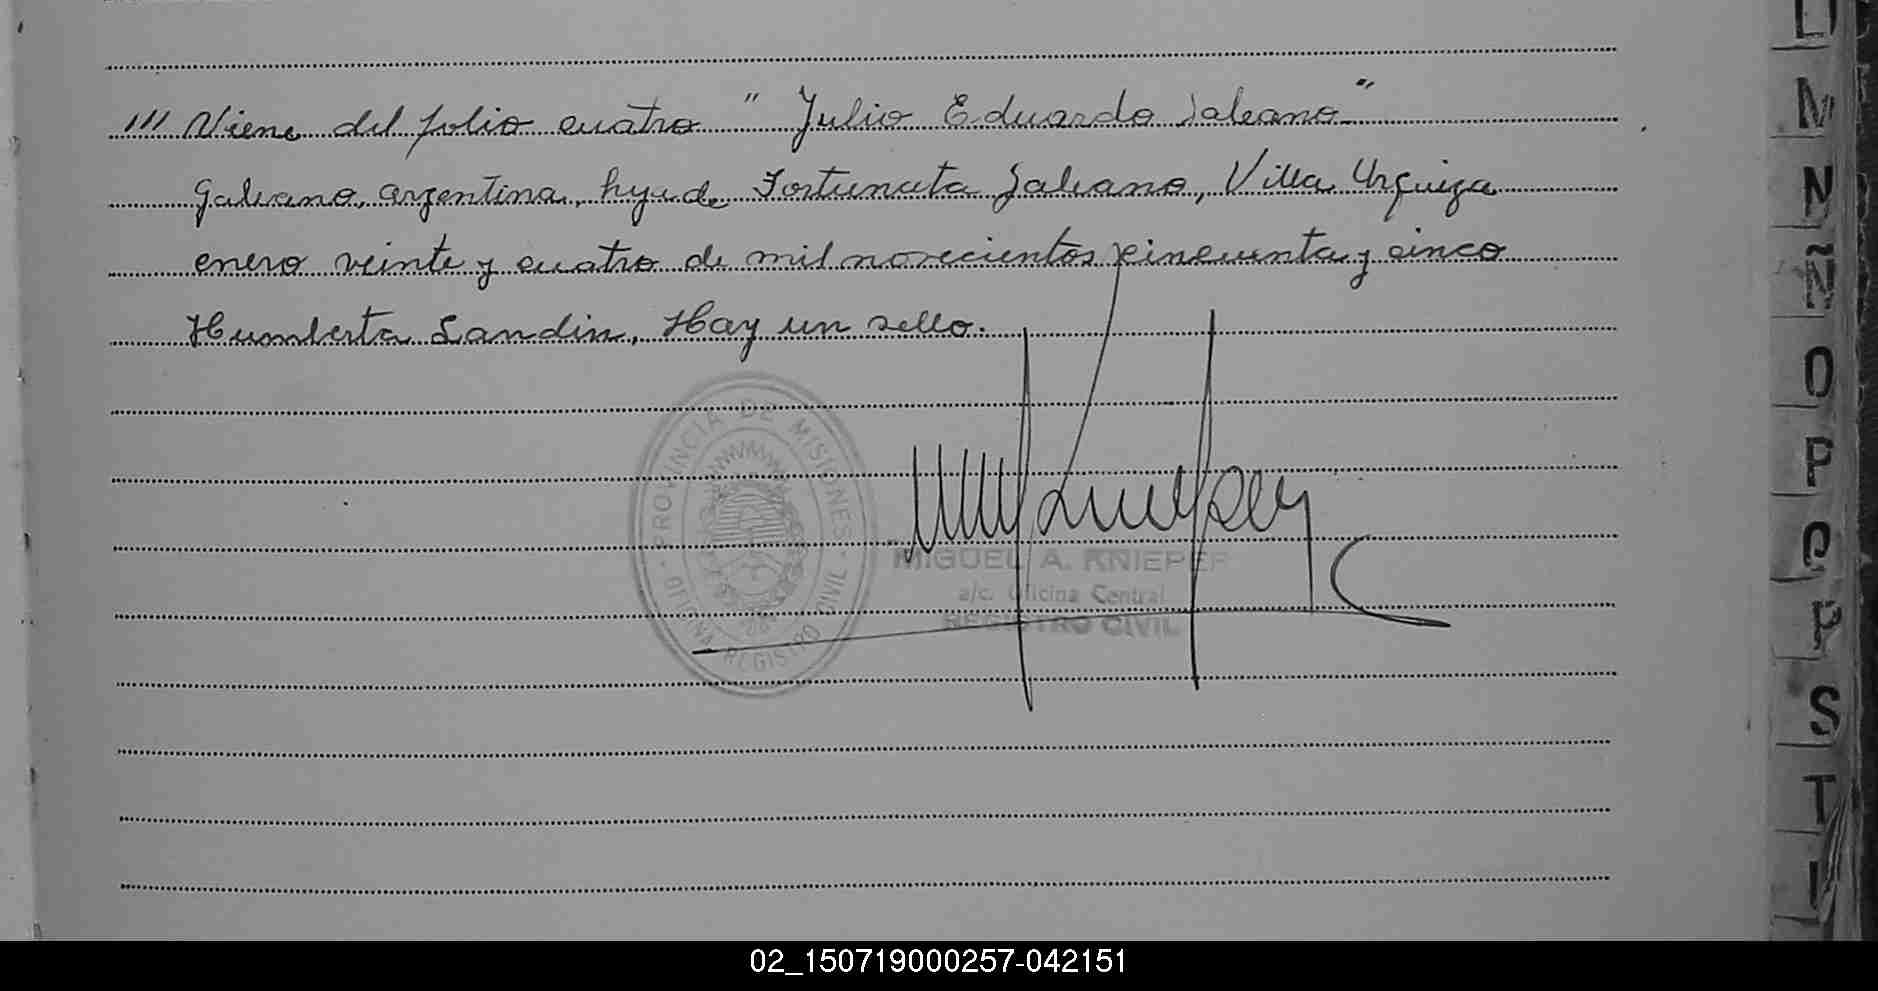 /// Viene del folio cuatro " Julio Eduardo Galeano "
Galeano, argentina, hija de Fortunata Galeano, Villa Urquiza
enero veinte y cuatro de mil novecientos cincuenta y cinco
Humberta Landin, Hay un sello.
· PROVINCIA DE MISIONES ·
OFICINA REGISTRO CIVIL
MIGUEL A. KNIEPER
a/c. Oficina Central
REGISTRO CIVIL
M
N
Ñ
O
P
Q
S
T
02_150719000257-042151